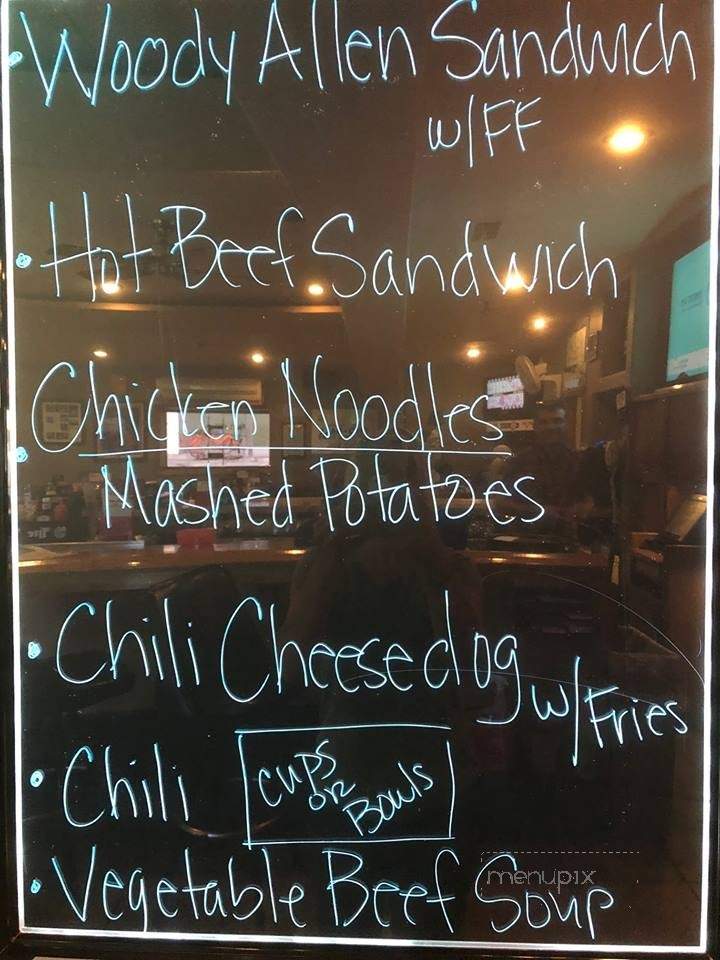 • Woody Allen Sandwich
w/FF
• Hot Beef Sandwich
• Chicken Noodles
Mashed Potatoes
• Chili Cheesedog w/Fries
• Chili Cups or Bowls
• Vegetable Beef Soup
menupix